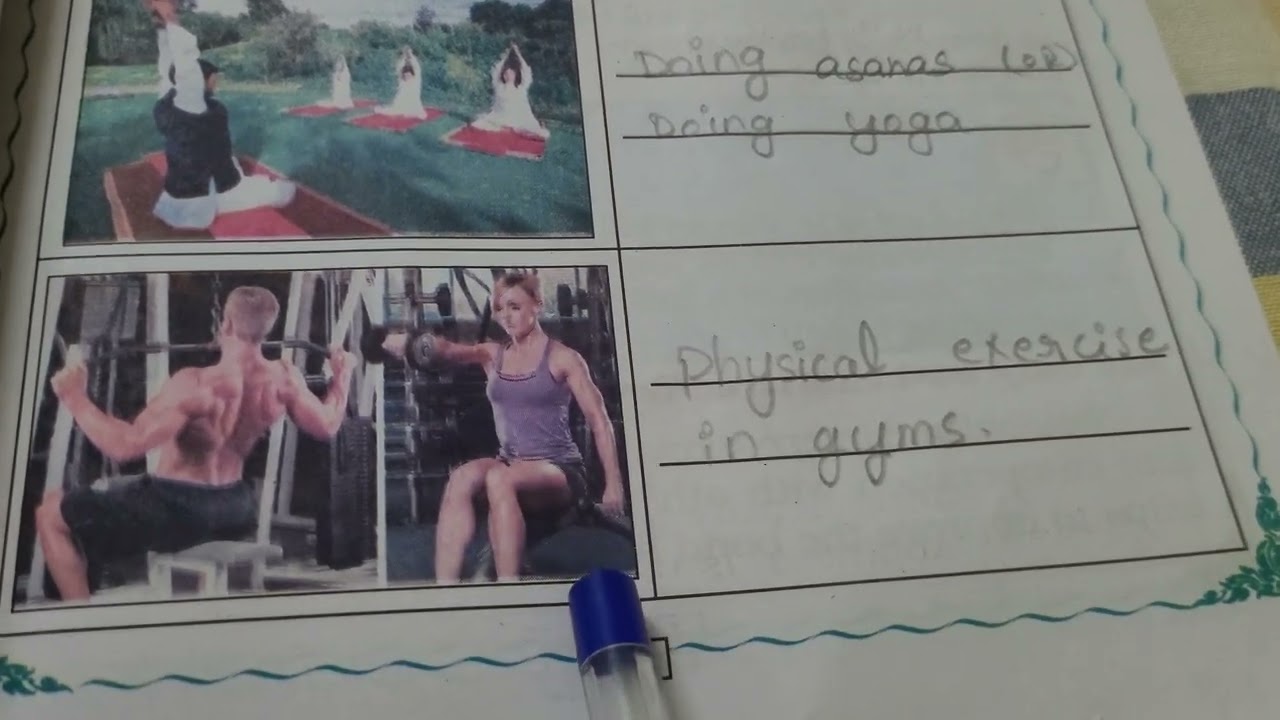 Doing asanas (OR)
Doing yoga
Physical exercise
in gyms.